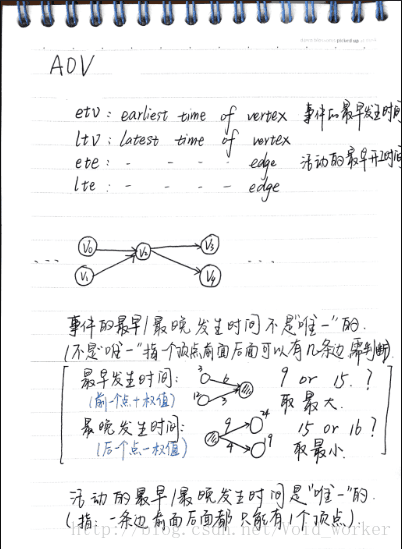 AOV
etv : earliest time of vertex 事件的最早发生时间
ltv : latest time of vertex
ete : - - - - edge 活动的最早开工时间
lte : - - - - edge
V0 V2 V3
... ...
V1 V4
事件的最早/最晚发生时间不是"唯一"的.
(不是"唯一"指一个顶点前面后面可以有几条边,需判断.
最早发生时间: 3 6 9 or 15. ?
(前一个点+权值) 12 3 取最大.
最晚发生时间: 9 24 15 or 16 ?
(后一个点-权值) 4 19 取最小.
活动的最早/最晚发生时间是"唯一"的.
(指: 一条边前面后面都只能有1个顶点).
http://blog.csdn.net/void_worker